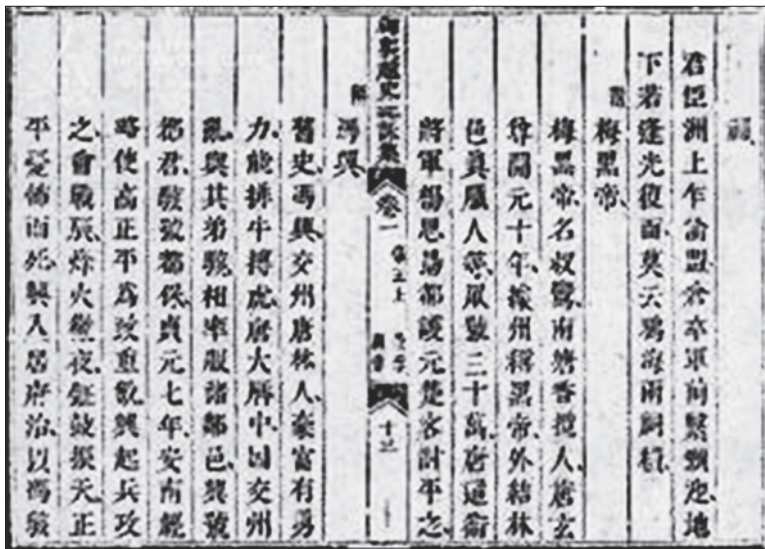 君臣洲上乍渝盟倉卒軍前繫頸迎地
下若逢光復面莫云鴉海兩
梅黑帝
梅黑帝名叔鸞南塘香攬人唐玄
尊開元十年據州稱黑帝外結林
邑真臘人等眾號三十萬唐遣衛
將軍楊思勗都護元楚客討平之
御製越史總詠集 卷一 帝王上 十三
馮興
舊史馮興交州唐林人豪富有勇
力能排牛搏虎唐大曆中因交州
亂與其弟駭相率服諸鄰邑興號
都君駭號都保貞元七年安南經
略使高正平為政重斂興起兵攻
之會戰辰炸火徹夜鉦鼓振天正
平憂怖而死興入居府治以馮駭